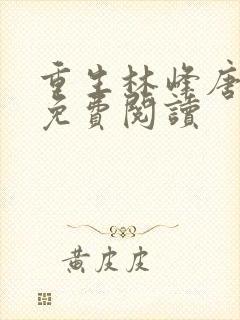 重生林峰唐
免費閱讀
黃皮皮